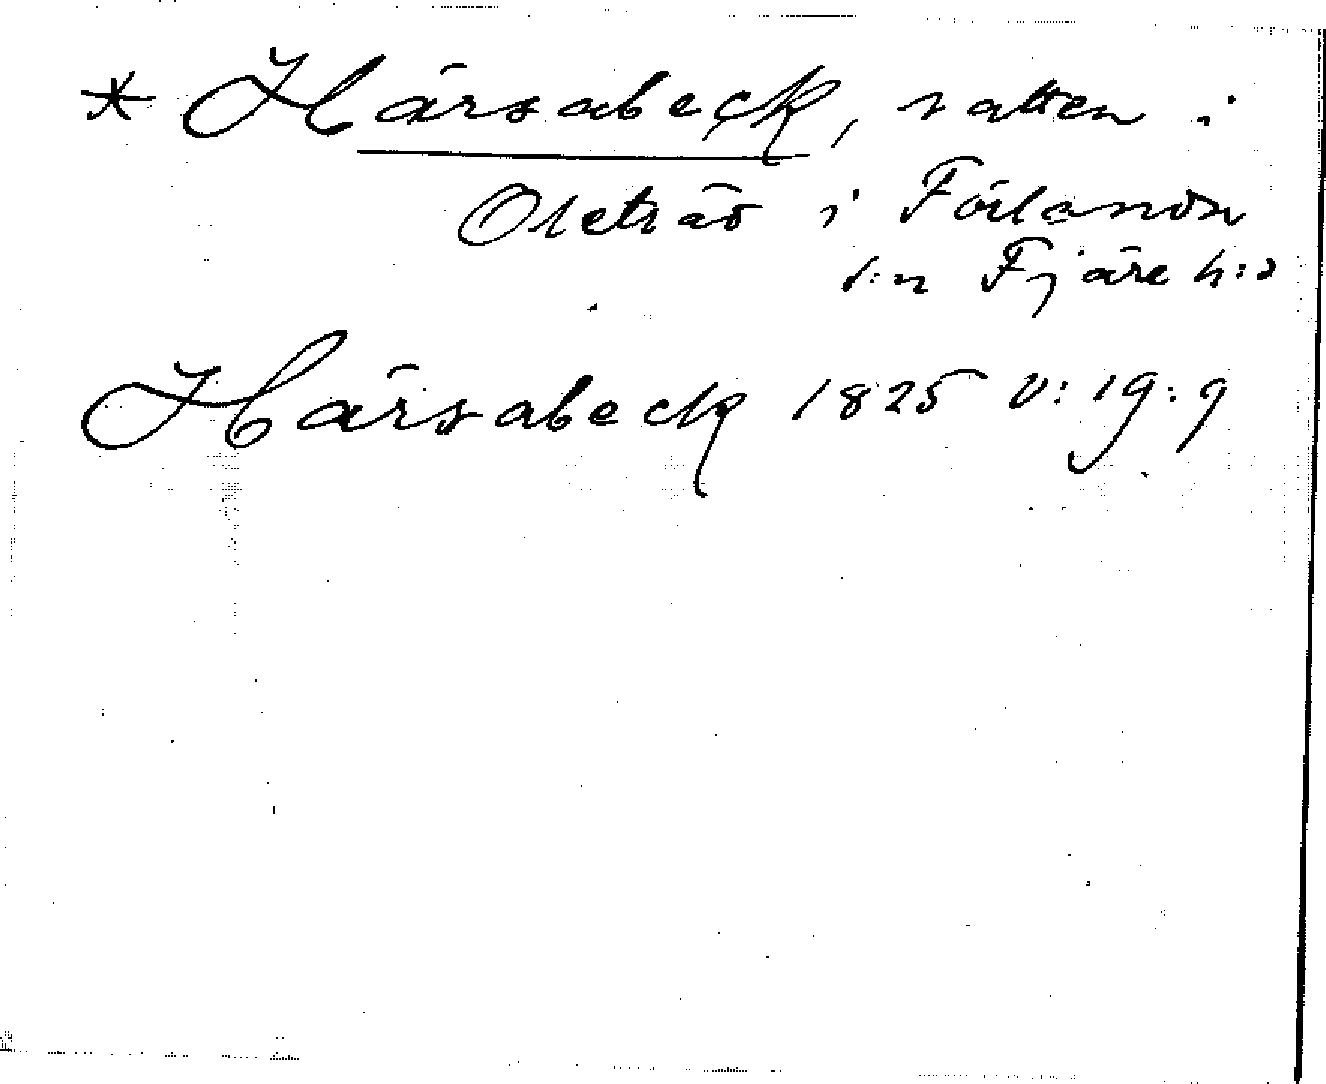 * Härsabeck, vatten i
Oleträd i Förlanda
s:n Fjäre h:d
Härsabeck 1825 V: 19: 9